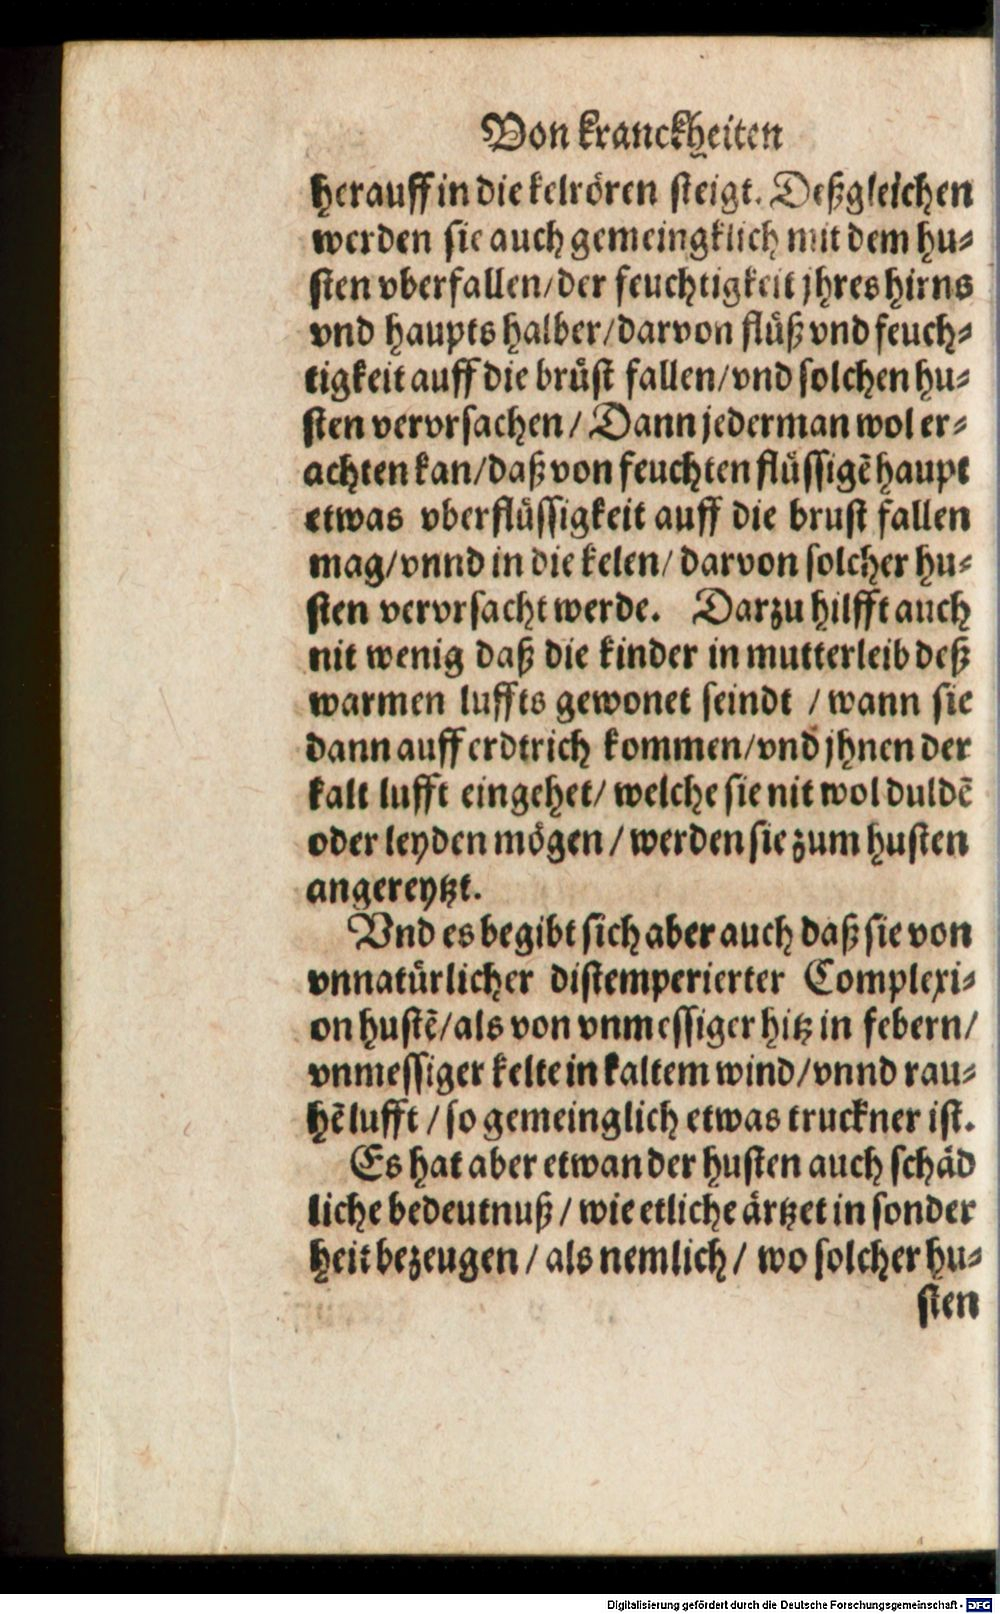 Von kranckheiten
herauff in die kelrören steigt. Deßgleichen
werden sie auch gemeingklich mit dem hu⸗
sten vberfallen/der feuchtigkeit jhres hirns
vnd haupts halber/darvon flüß vnd feuch⸗
tigkeit auff die brüst fallen/vnd solchen hu⸗
sten vervrsachen/ Dann jederman wol er⸗
achten kan/daß von feuchten flüssigē haupt
etwas vberflüssigkeit auff die brust fallen
mag/vnnd in die kelen/ darvon solcher hu⸗
sten vervrsacht werde. Darzu hilfft auch
nit wenig daß die kinder in mutterleib deß
warmen luffts gewonet seindt / wann sie
dann auff erdtrich kommen/vnd jhnen der
kalt lufft eingehet/ welche sie nit wol duldē
oder leyden mögen / werden sie zum husten
angereytzt.
Vnd es begibt sich aber auch daß sie von
vnnatürlicher distemperierter Complexi⸗
on hustē/als von vnmessiger hitz in febern/
vnmessiger kelte in kaltem wind/vnnd rau⸗
hē lufft / so gemeinglich etwas truckner ist.
Es hat aber etwan der husten auch schäd
liche bedeutnuß / wie etliche ärtzet in sonder
heit bezeugen / als nemlich / wo solcher hu⸗
sten
Digitalisierung gefördert durch die Deutsche Forschungsgemeinschaft - DFG